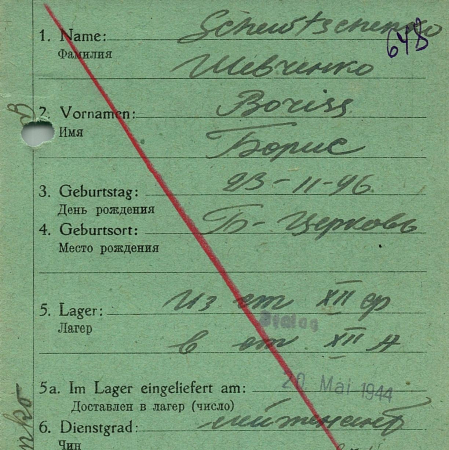 1. Name: Schewtschenko
648
Фамилия
Шевченко
2. Vornamen: Boriss
Имя
Борис
3. Geburtstag: 23-11-96.
День рождения
4. Geburtsort: Б-Церковь
Место рождения
5. Lager: Из ст XII ф
Лагерь
Stalag
в ст. XII А
5a. Im Lager eingeliefert am: 20 Mai 1944
Доставлен в лагерь (число)
6. Dienstgrad: лейтенант
Чин